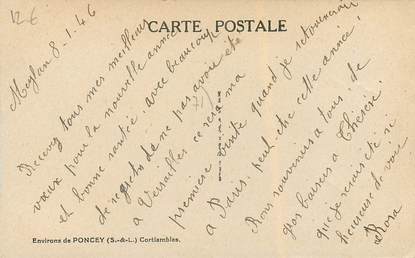 12€
CARTE POSTALE
Meylan 8-1.46
Recevez tous mes meilleurs
vœux pour la nouvelle année
et bonne santée, avec beaucoup
de regrets de ne pas avoir été
à Versailles ce sera ma
première visite quand je retournerai
à Paris, peut être cette année!
Bons souvenirs a tous, de
gros baisers a Thérèse.
que je serais été si
heureuse de voir
Rosa
71
Environs de PONCEY (S.-&-L.) Cortiambles.